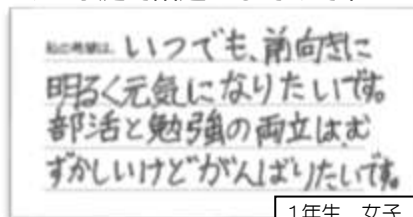 私の希望は、いつでも、前向きに
明るく元気になりたいです。
部活と勉強の両立は、む
ずかしいけどがんばりたいです。
1年生 女子